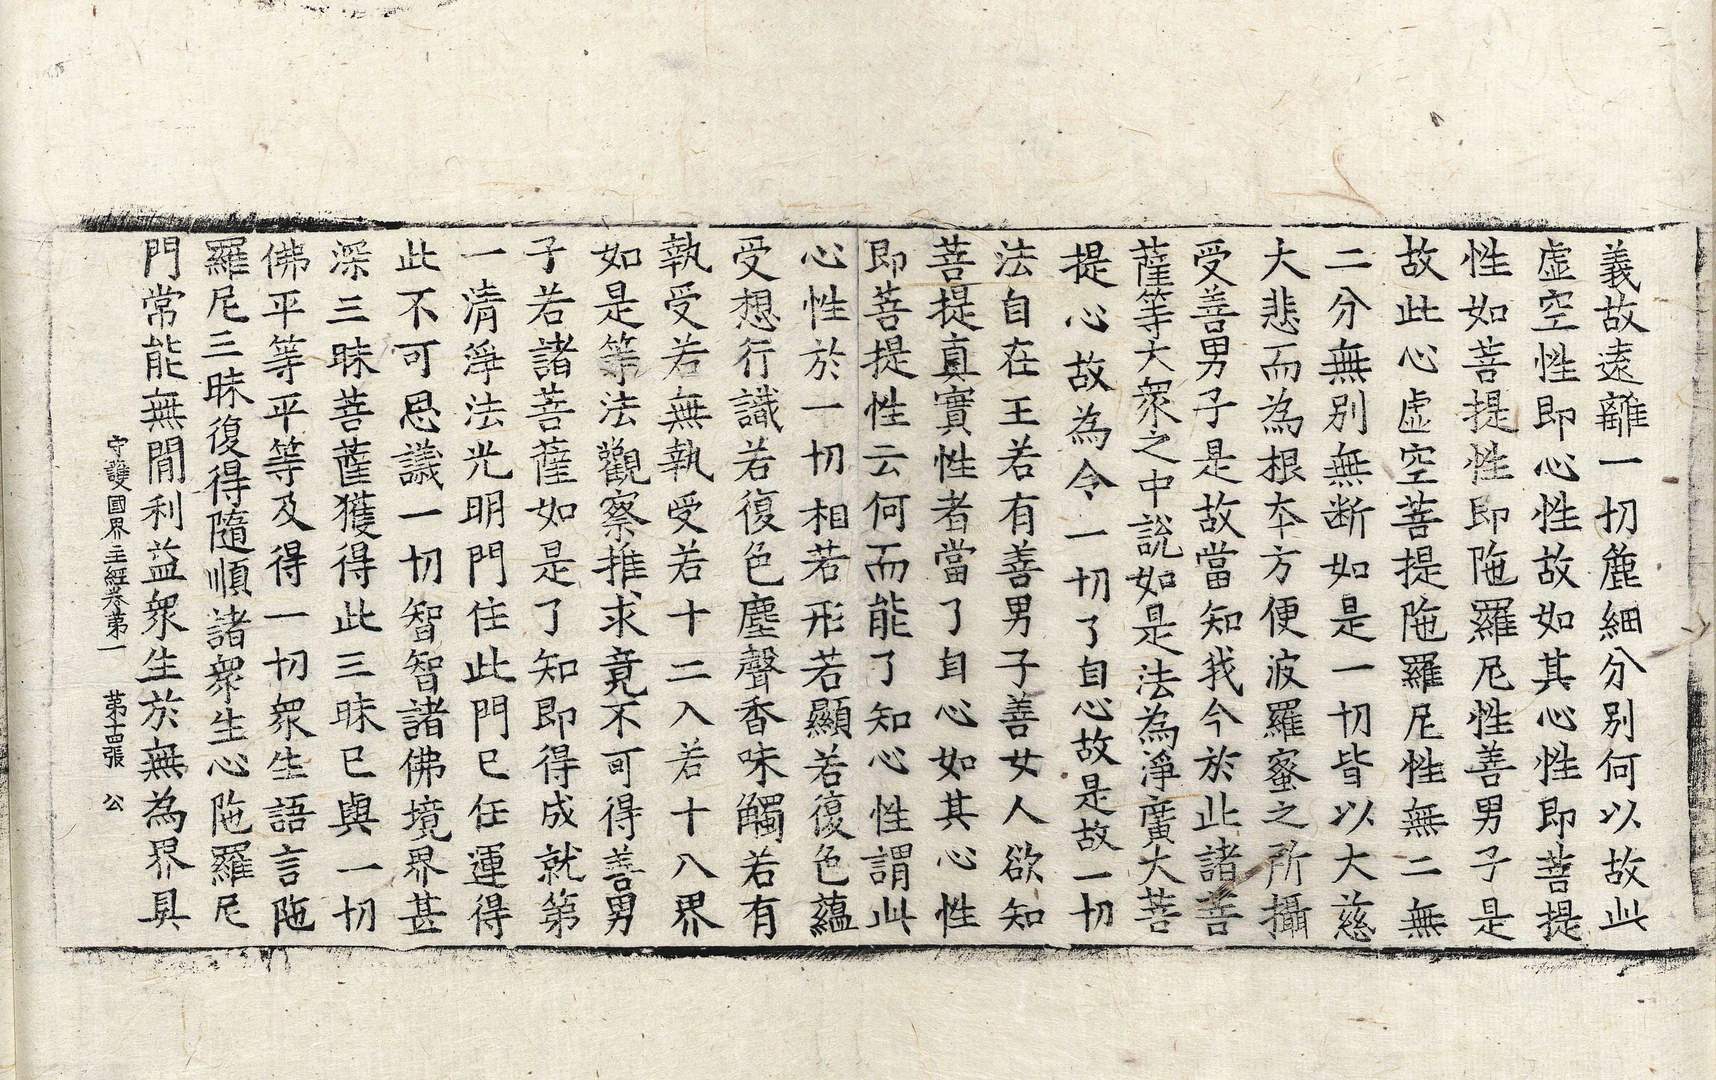 義故遠離一切麁細分別何以故此
虛空性即心性故如其心性即菩提
性如菩提性即陁羅尼性善男子是
故此心虛空菩提陁羅尼性無二無
二分無別無断如是一切皆以大慈
大悲而為根本方便波羅蜜之所攝
受善男子是故當知我今於此諸善
薩等大衆之中說如是法為淨廣大菩
提心故為令一切了自心故是故一切
法自在王若有善男子善女人欲知
菩提真實性者當了自心如其心性
即菩提性云何而能了知心性謂此
心性於一切相若形若顯若復色蘊
受想行識若復色塵聲香味觸若有
執受若無執受若十二入若十八界
如是等法觀察推求竟不可得善男
子若諸菩薩如是了知即得成就第
一清淨法光明門住此門已任運得
此不可思議一切智智諸佛境界甚
深三昧菩薩獲得此三昧已與一切
佛平等平等及得一切衆生語言陁
羅尼三昧復得隨順諸衆生心陁羅尼
門常能無間利益衆生於無為界具
守護國界主經卷苐一　苐十四張　公